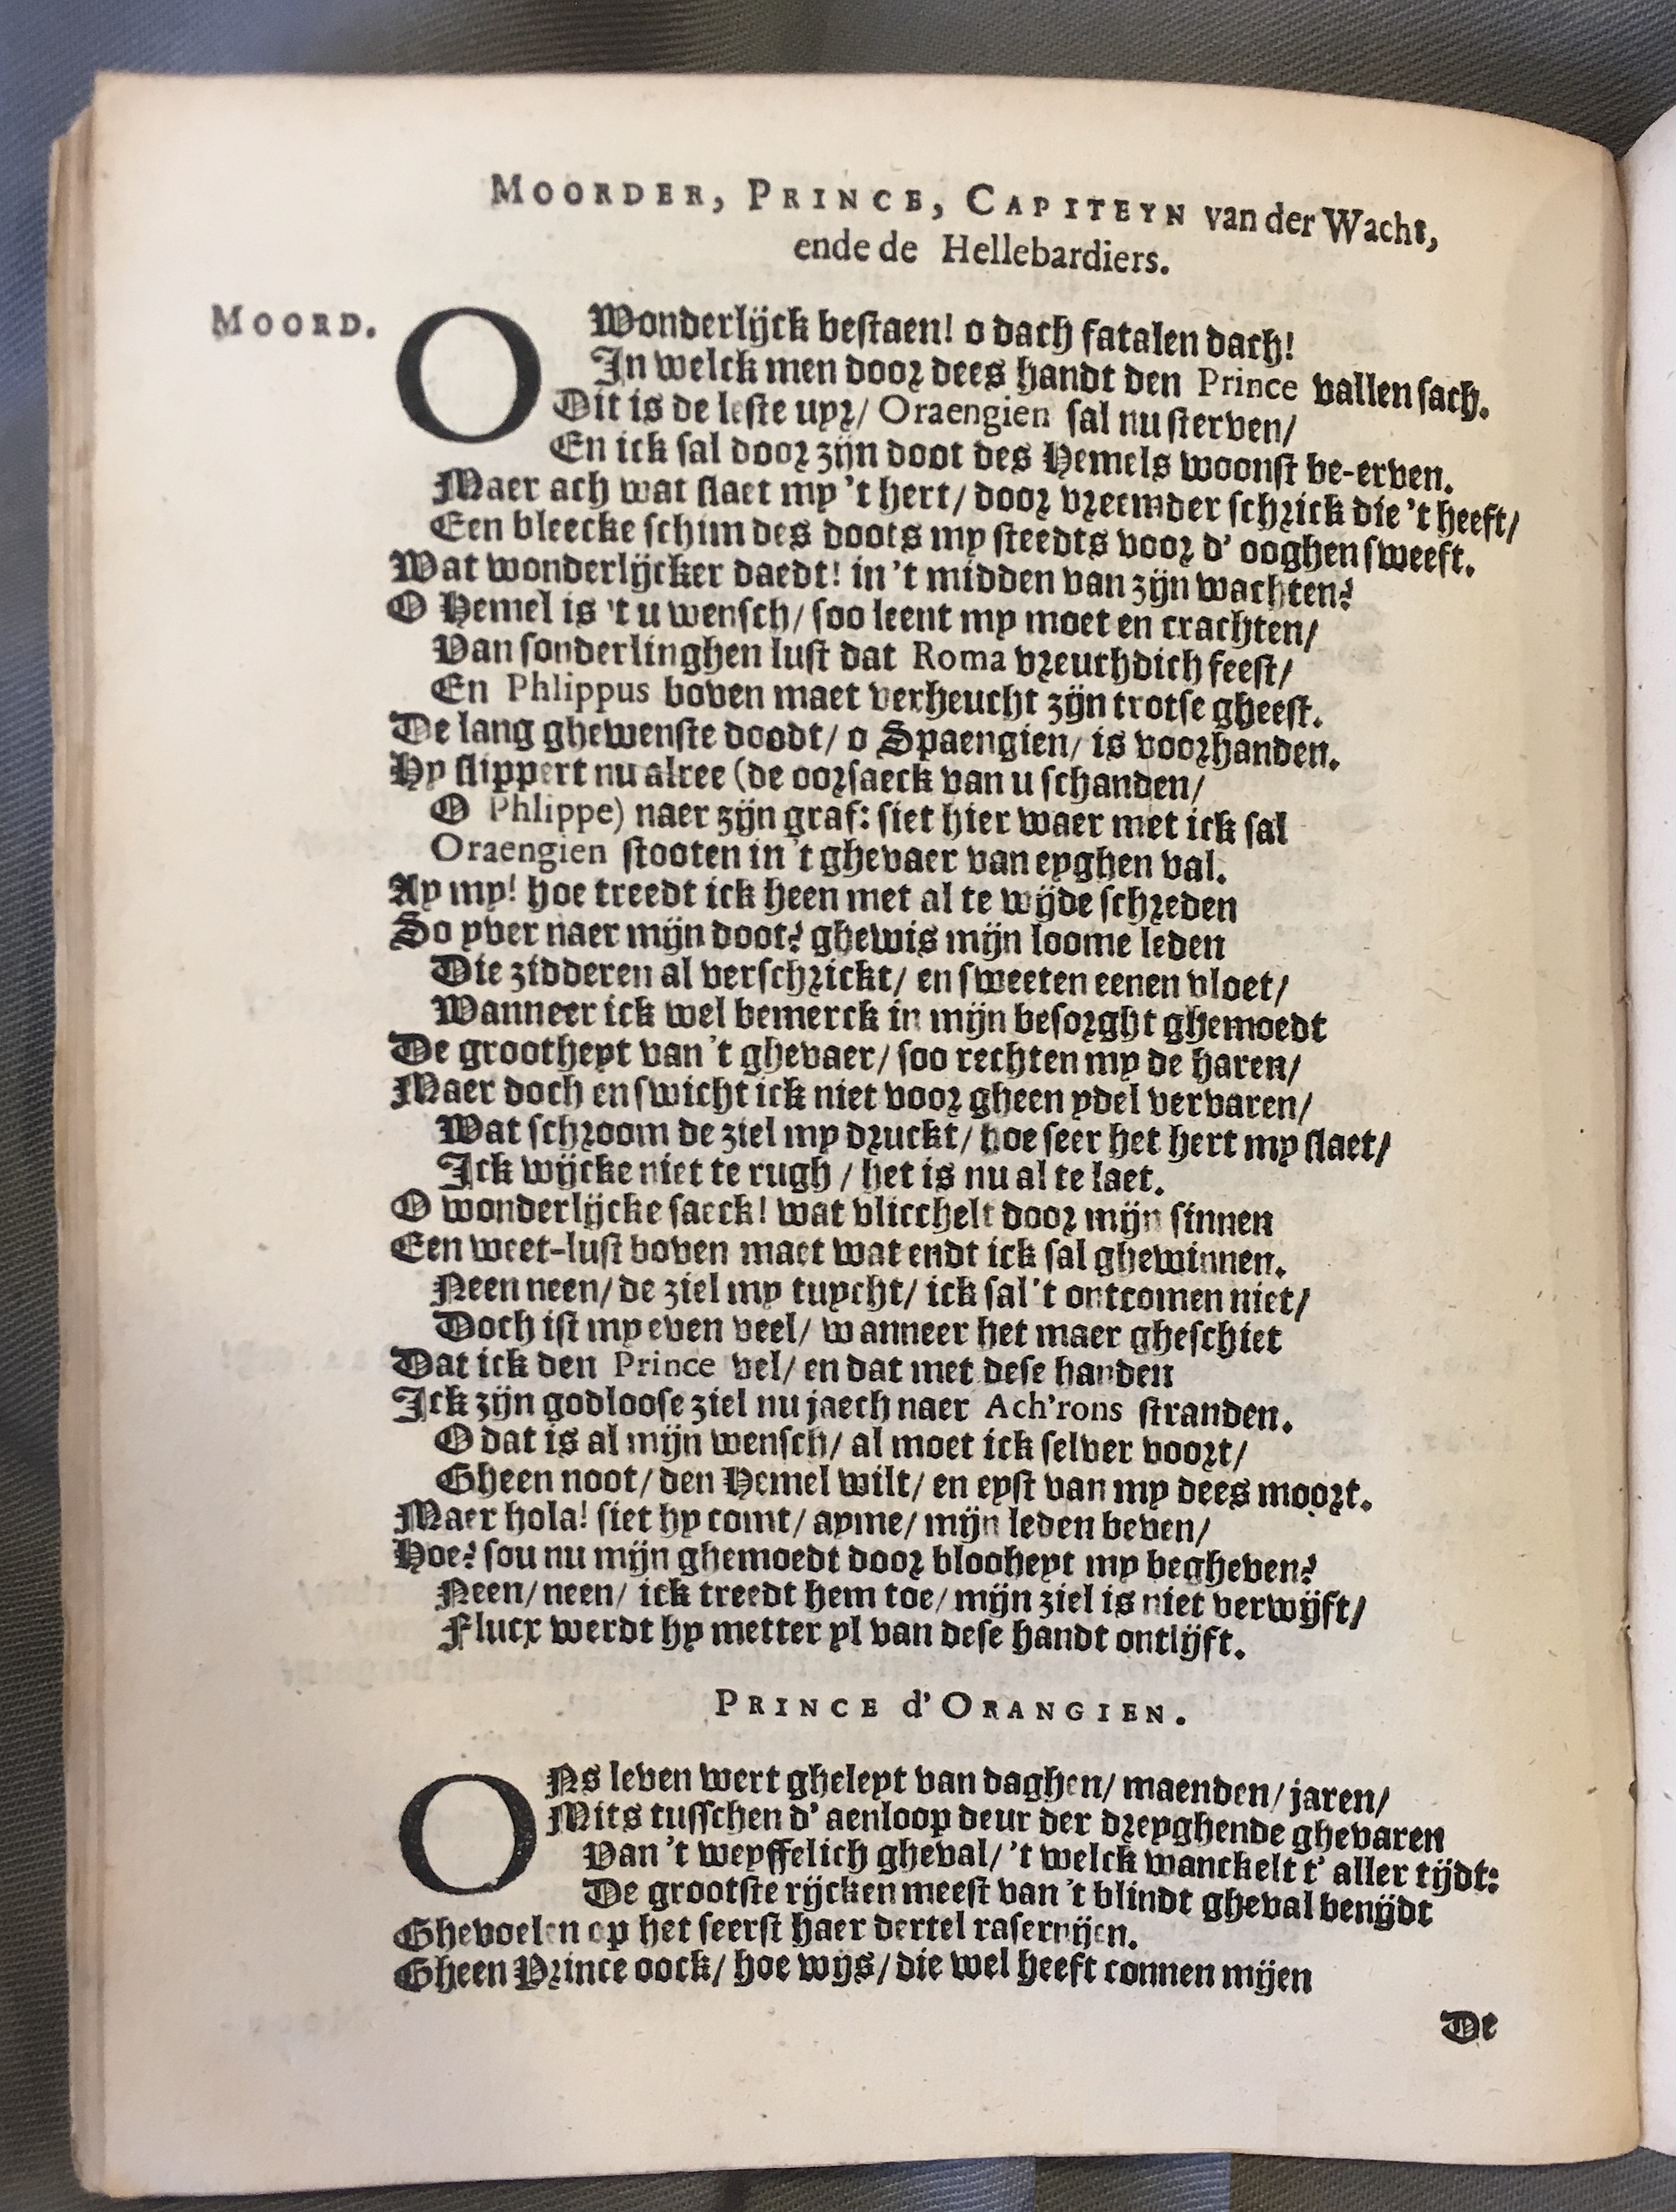 MOORDER, PRINCE, CAPITEYN van der Wacht,
ende de Hellebardiers.
MOORD. O Wonderlijck bestaen! o dach fatalen dach!
In welck men door dees handt den Prince vallen sach.
Dit is de leste uyr/ Oraengien sal nu sterven/
En ick sal door zijn doot des Hemels woonst be-erven.
Maer ach wat slaet my 't hert/ door vreemder schrick die 't heeft/
Een bleecke schim des doots my steedts voor d' ooghen sweeft.
Wat wonderlijcker daedt! in 't midden van zijn wachten?
O Hemel is 't u wensch/ soo leent my moet en crachten/
Van sonderlinghen lust dat Roma vreuchdich feest/
En Phlippus boven maet verheucht zijn trotse gheest.
De lang ghewenste doodt/ o Spaengien/ is voorhanden.
Hy slippert nu alree (de oorsaeck van u schanden/
O Phlippe) naer zijn graf: siet hier waer met ick sal
Oraengien stooten in 't ghevaer van eyghen val.
Ay my! hoe treedt ick heen met al te wijde schreden
So yver naer mijn doot? ghewis mijn loome leden
Die zidderen al verschrickt/ en sweeten eenen vloet/
Wanneer ick wel bemerck in mijn besorght ghemoedt
De grootheyt van 't ghevaer/ soo rechten my de haren/
Maer doch en swicht ick niet voor gheen ydel vervaren/
Wat schroom de ziel my druckt/ hoe seer het hert my slaet/
Ick wijcke niet te rugh / het is nu al te laet.
O wonderlijcke saeck! wat vlicchelt door mijn sinnen
Een weet-lust boven maet wat endt ick sal ghewinnen.
Neen neen/ de ziel my tuycht/ ick sal 't ontcomen niet/
Doch ist my even veel/ wanneer het maer gheschiet
Dat ick den Prince vel/ en dat met dese handen
Ick zijn godloose ziel nu jaech naer Ach'rons stranden.
O dat is al mijn wensch/ al moet ick selver voort/
Gheen noot/ den Hemel wilt/ en eyst van my dees moort.
Maer hola! siet hy comt/ ayme/ mijn leden beven/
Hoe? sou nu mijn ghemoedt door blooheyt my begheven?
Neen/ neen/ ick treedt hem toe/ mijn ziel is niet verwijft/
Flucx werdt hy metter yl van dese handt ontlijft.
PRINCE d'ORANGIEN.
ONs leven wert gheleyt van daghen/ maenden/ jaren/
Mits tusschen d' aenloop deur der dreyghende ghevaren
Van 't weyffelich gheval/ 't welck wanckelt t' aller tijdt:
De grootste rijcken meest van 't blindt gheval benijdt
Ghevoelen op het seerst haer dertel rasernijen.
Gheen Prince oock/ hoe wijs/ die wel heeft connen mijen
De